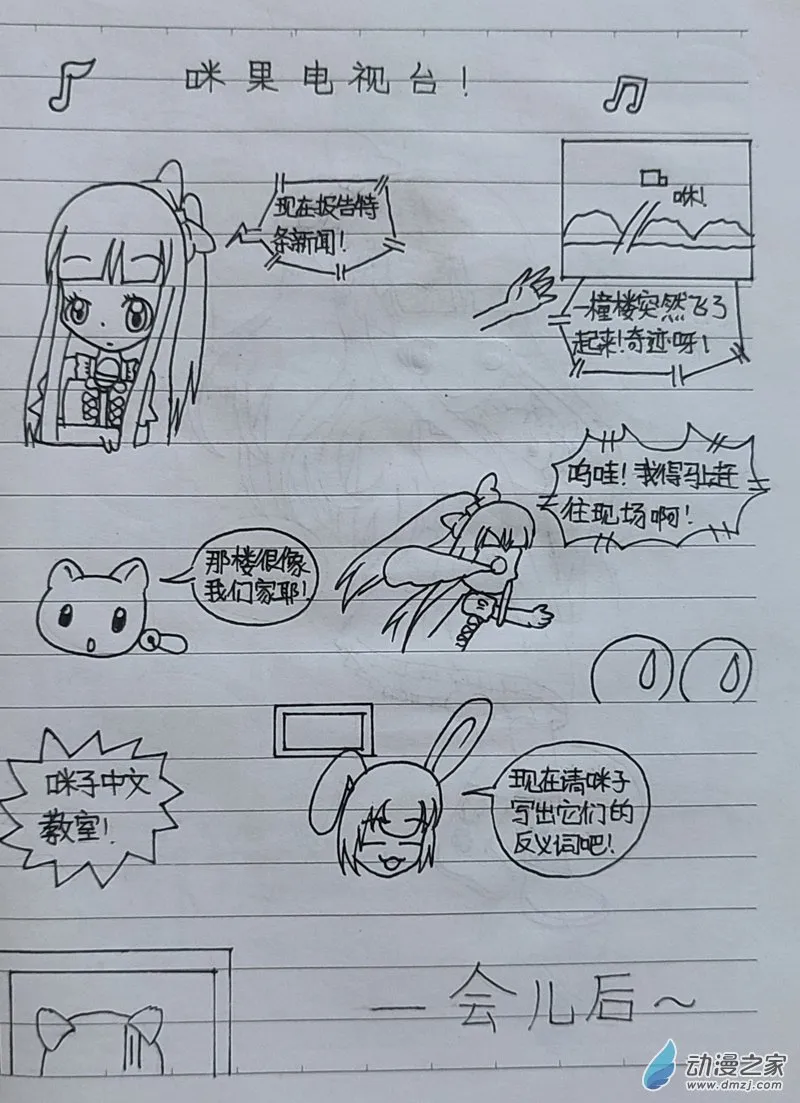 咪果电视台！
现在报告特
条新闻！
咪！
一撞楼突然飞了
起来！奇迹呀！
呜哇！我得马上赶
往现场啊！
那楼很像
我们家耶！
咪子中文
教室！
现在请咪子
写出它们的
反义词吧！
一会儿后～
动漫之家
www.dmzj.com